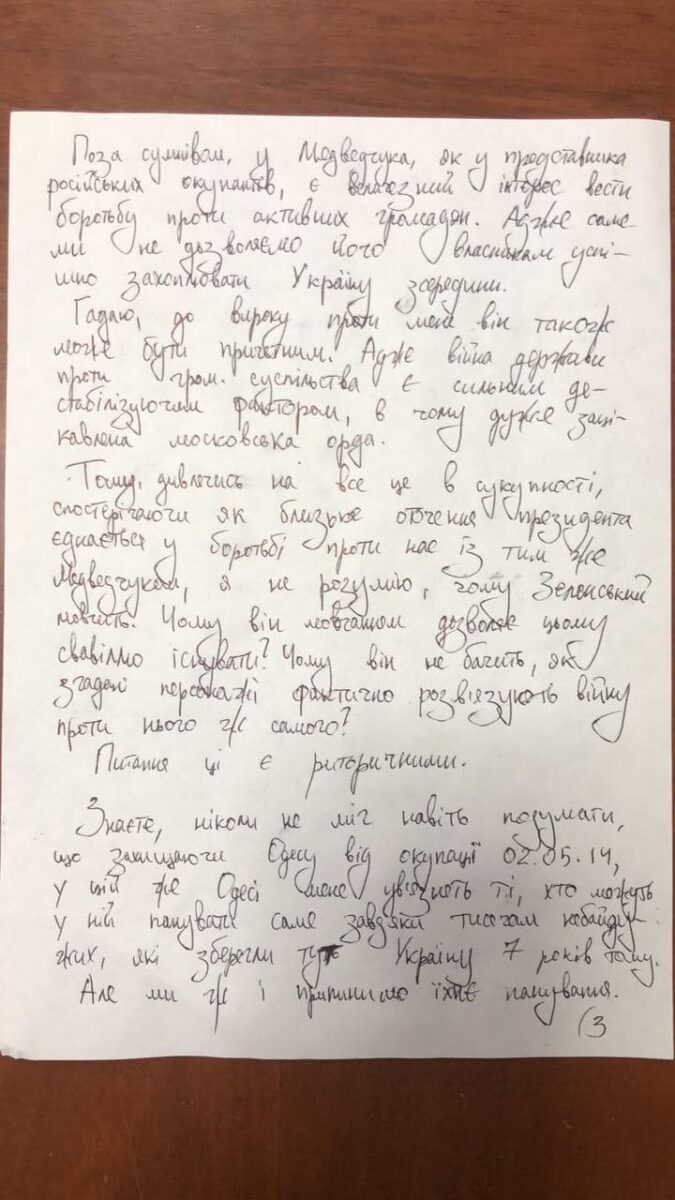 Поза сумнівом, у Медведчука, як у представника
російських окупантів, є величезний інтерес вести
боротьбу проти активних громадян. Адже саме
ми не дозволяємо його власникам успі-
шно захоплювати Україну зсередини.
Гадаю, до вироку проти мене він також
може бути причетним. Адже війна держави
проти гром. суспільства є сильним де-
стабілізуючим фактором, в чому дуже заці-
кавлена московська орда.
Тому, дивлячись на все це в сукупності,
спостерігаючи як близьке оточення президента
єднається у боротьбі проти нас із тим же
Медведчуком, я не розумію, чому Зеленський
мовчить. Чому він мовчанням дозволяє цьому
свавіллю існувати? Чому він не бачить, як
згадані персонажі фактично розв'язують війну
проти нього ж самого?
Питання ці є риторичними.
Знаєте, ніколи не міг навіть подумати,
що захищаючи Одесу від окупації 02.05.14,
у тій же Одесі мене ув'язнять ті, хто можуть
у ній панувати саме завдяки тисячам небайду-
жих, які зберегли тут Україну 7 років тому.
Але ми ж і припинимо їхнє панування.
(3